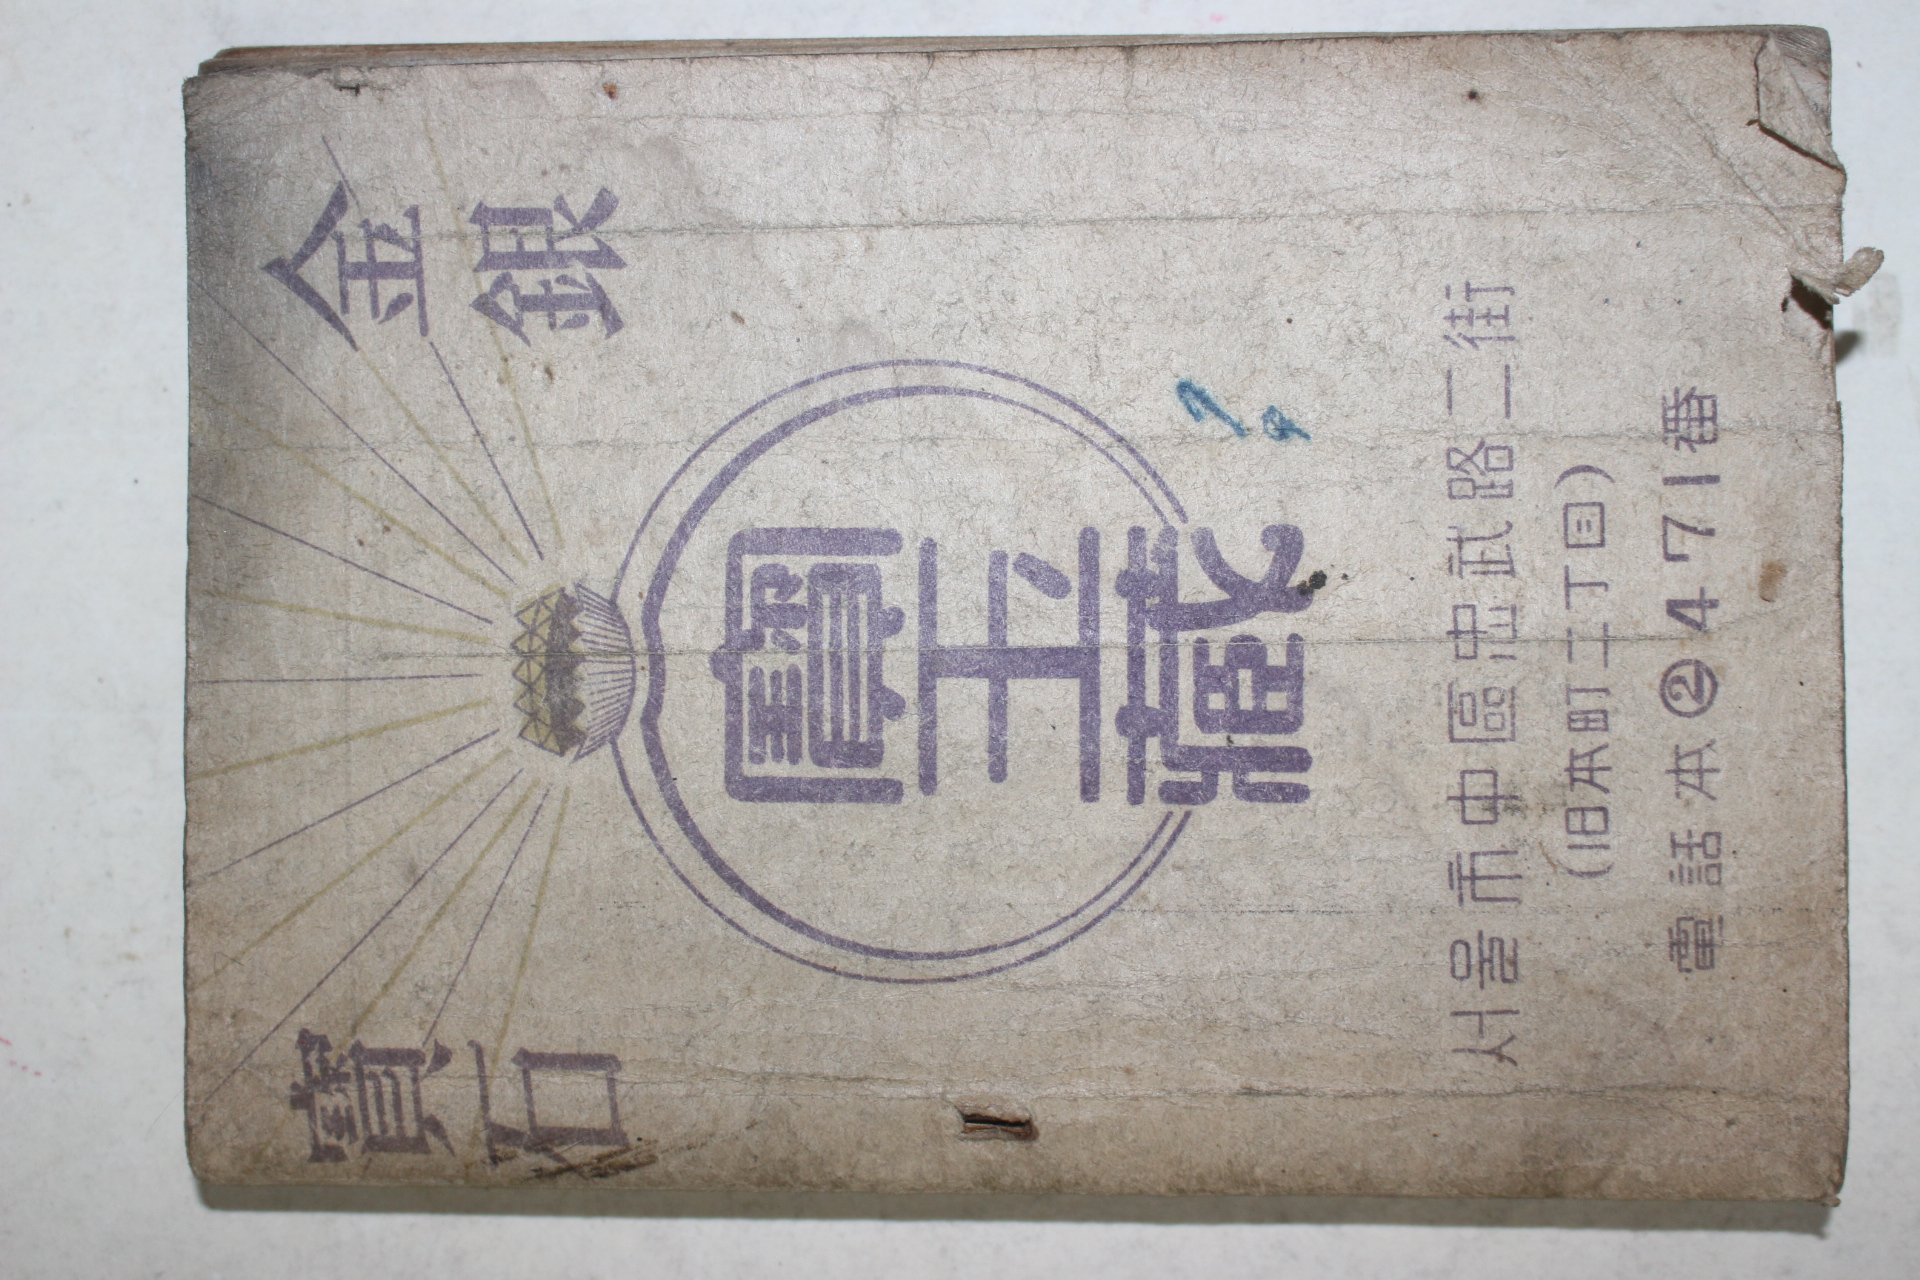 金銀
寶石
寶玉藏
서울市中區忠武路二街
(旧本町二丁目)
電話本②471番